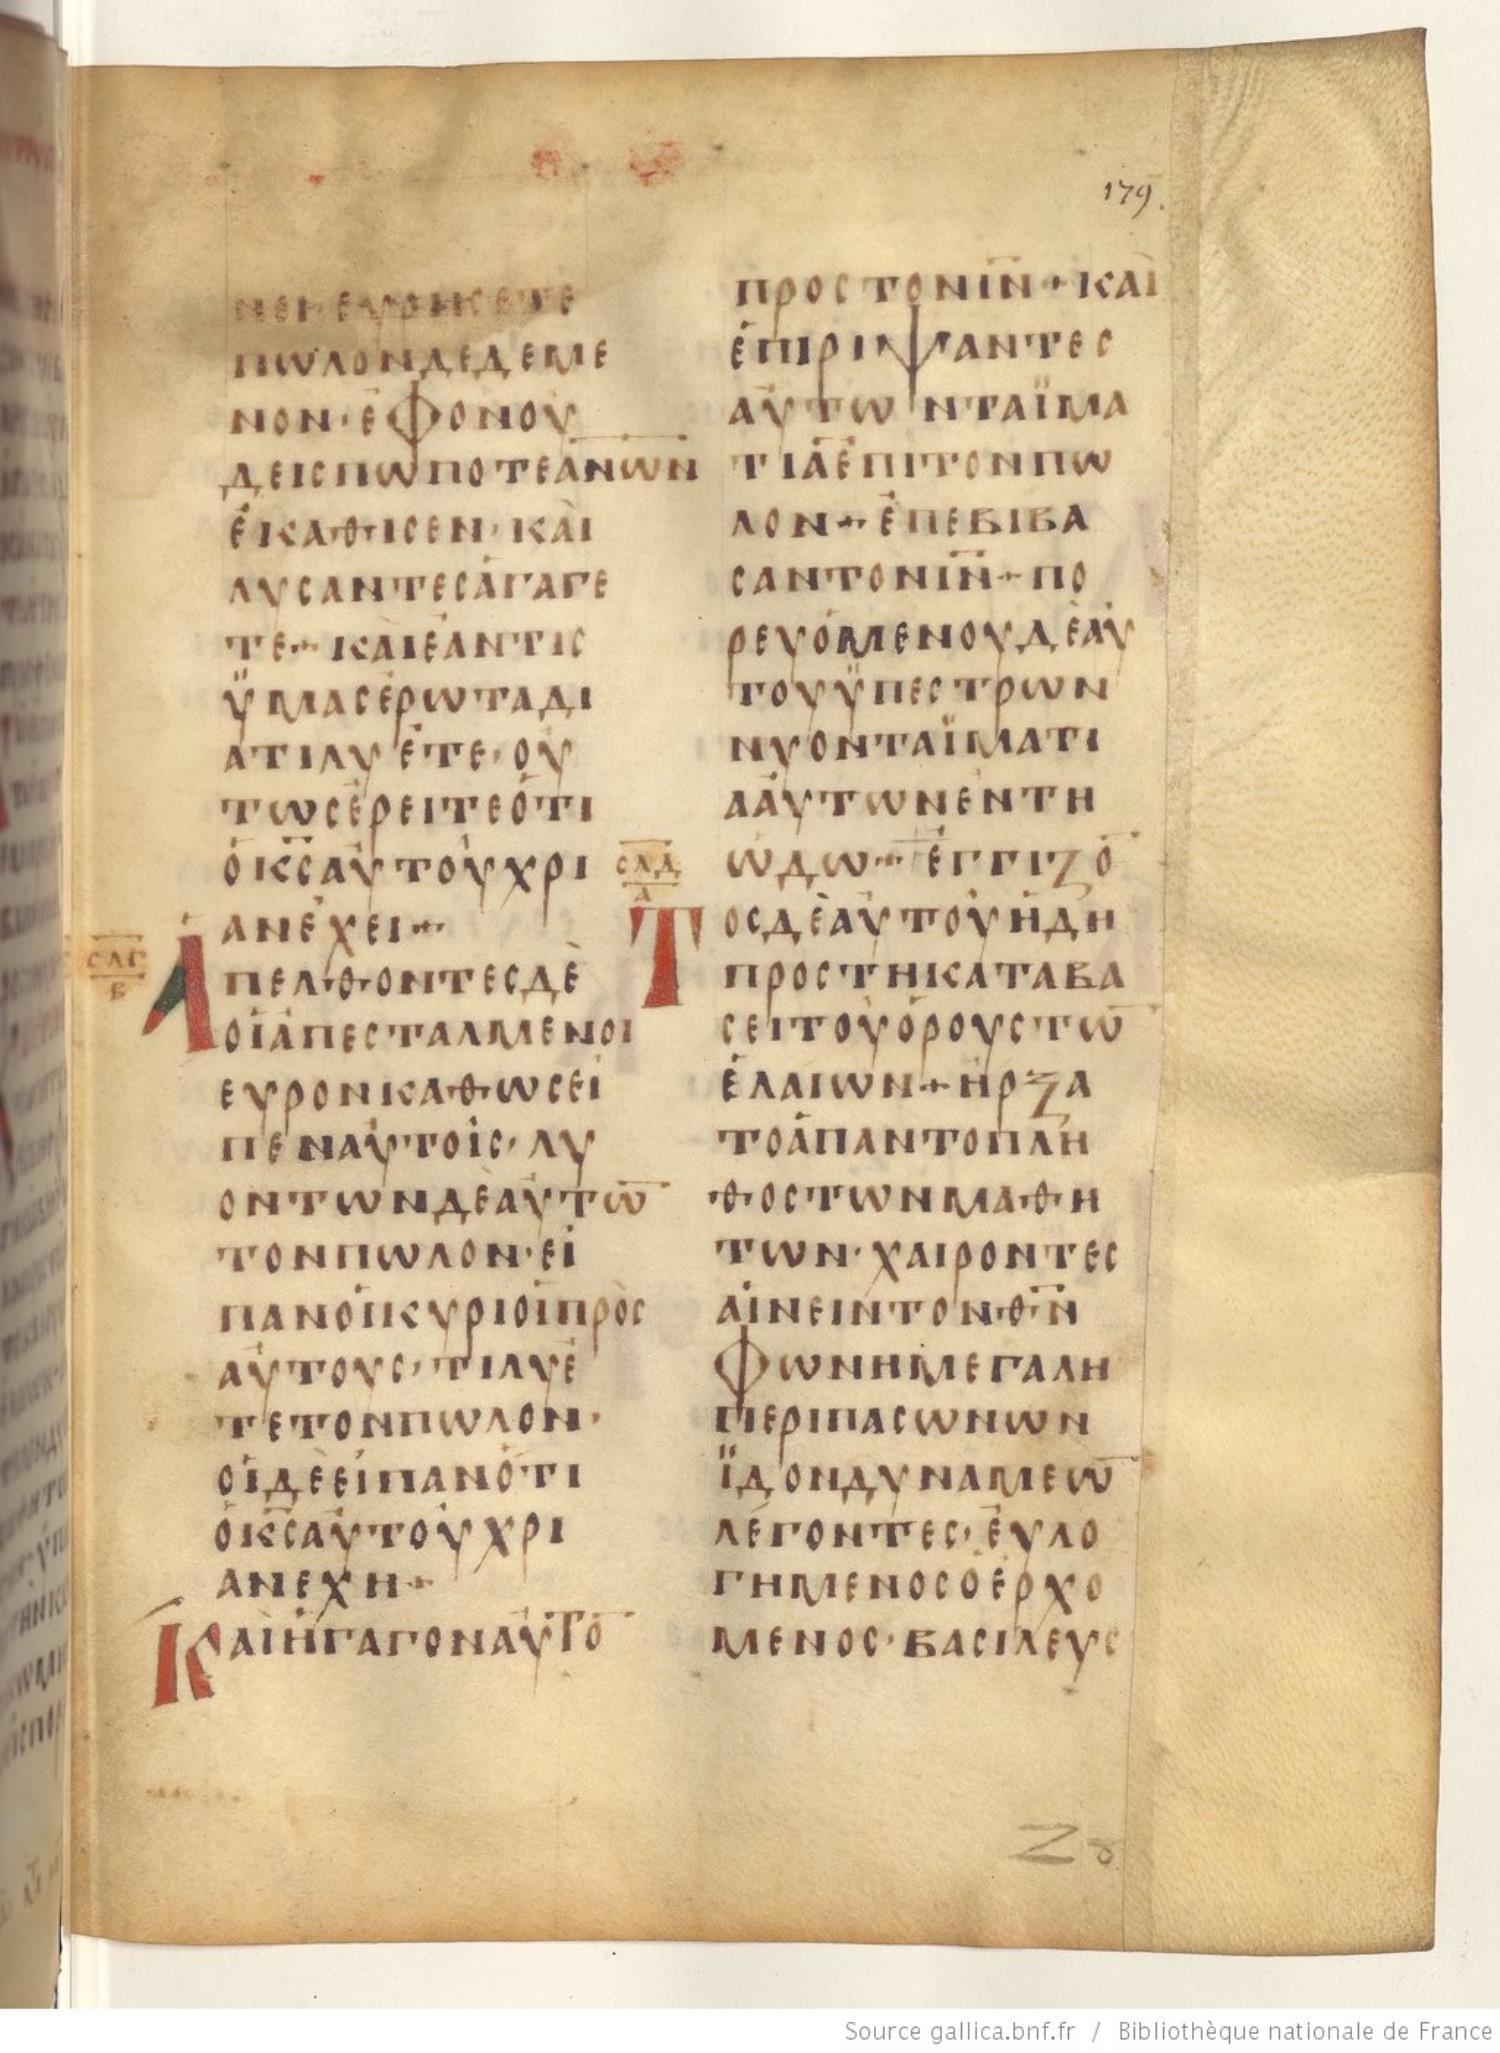 179.
ΝΕΙϹΕΥΡΗϹΕΤΕ
ΠΩΛΟΝΔΕΔΕΜΕ
ΝΟΝ·ΕΦΟΝΟΥ
ΔΕΙϹΠΩΠΟΤΕΑΝ̅Ω̅Ν̅
ἘΚΑΘΙϹΕΝ·ΚΑῚ
ΛΥϹΑΝΤΕϹἈΓΑΓΕ
ΤΕ+ΚΑῚἘΑΝΤΙϹ
ΫΜΑϹἘΡΩΤΑΔΙ
ΑΤΙΛΥἘΤΕ·ΟΥ
ΤΩϹἘΡΕΙΤΕὍΤΙ
ὉΚ̅Ϲ̅ΑΥ̓ΤΟΥ͂ΧΡΙ
ΑΝἘΧΕΙ+
ϹΛΓ
Β
ΑΠΕΛΘΟΝΤΕϹΔῈ
ΟἹἈΠΕϹΤΑΛΜΕΝΟΙ
ΕΥΡΟΝΚΑΘΩϹΕἸ
ΠΕΝΑΥ̓ΤΟΙ͂Ϲ·ΛΥ
ΟΝΤΩΝΔῈΑΥ̓ΤΩ̅
ΤΟΝΠΩΛΟΝ·ΕἸ
ΠΑΝΟἹΚΥΡΙΟΙΠΡῸϹ
ΑΥ̓ΤΟΥϹ·ΤΙΛΥῈ
ΤΕΤΟΝΠΩΛΟΝ·
ΟἹΔῈΕἸΠΑΝὍΤΙ
ὉΚ̅Ϲ̅ΑΥ̓ΤΟΥ͂ΧΡΙ
ΑΝΕΧΗ+
ΚΑῚἨΓΑΓΟΝΑΥ̓ΤΟ̅
ΠΡΟϹΤΟΝΙ̅Ν̅+ΚΑῚ
ἘΠΙΡΙΨΑΝΤΕϹ
ΑΥ̓ΤΩΝΤΑΪΜΑ
ΤΙΑἘΠΙΤΟΝΠΩ
ΛΟΝ+ἘΠΕΒΙΒΑ
ϹΑΝΤΟΝΙ̅Ν̅+ΠΟ
ΡΕΥΌΜΕΝΟΥΔῈΑΥ̓
ΤΟΥΫΠΕϹΤΡΩΝ
ΝΥΟΝΤΑΪΜΑΤΙ
ΑΑΥ̓ΤΩΝἘΝΤΗ
ὩΔΩ+ἘΓΓΙΖΟ̅
ϹΛΔ
Α
ΤΟϹΔῈΑΥ̓ΤΟΥ͂ἨΔΗ
ΠΡΟϹΤΗΚΑΤΑΒΑ
ϹΕΙΤΟΥ͂ὈΡΟΥϹΤΩ̅
ἘΛΑΙΩΝ+ΗΡΞΑ
ΤΟἈΠΑΝΤΟΠΛΗ
ΘΟϹΤΩΝΜΑΘΗ
ΤΩΝ·ΧΑΙΡΟΝΤΕϹ
ΑἸΝΕΙΝΤΟΝΘ̅Ν̅
ΦΩΝΗΜΕΓΑΛΗ
ΠΕΡΙΠΑϹΩΝΩΝ
ΪΔΟΝΔΥΝΑΜΕΩ̅
ΛΈΓΟΝΤΕϹ·ΕΥ̓ΛΟ
ΓΗΜΕΝΟϹὉἘΡΧΟ
ΜΕΝΟϹ·ΒΑϹΙΛΕΥϹ
Source gallica.bnf.fr / Bibliothèque nationale de France